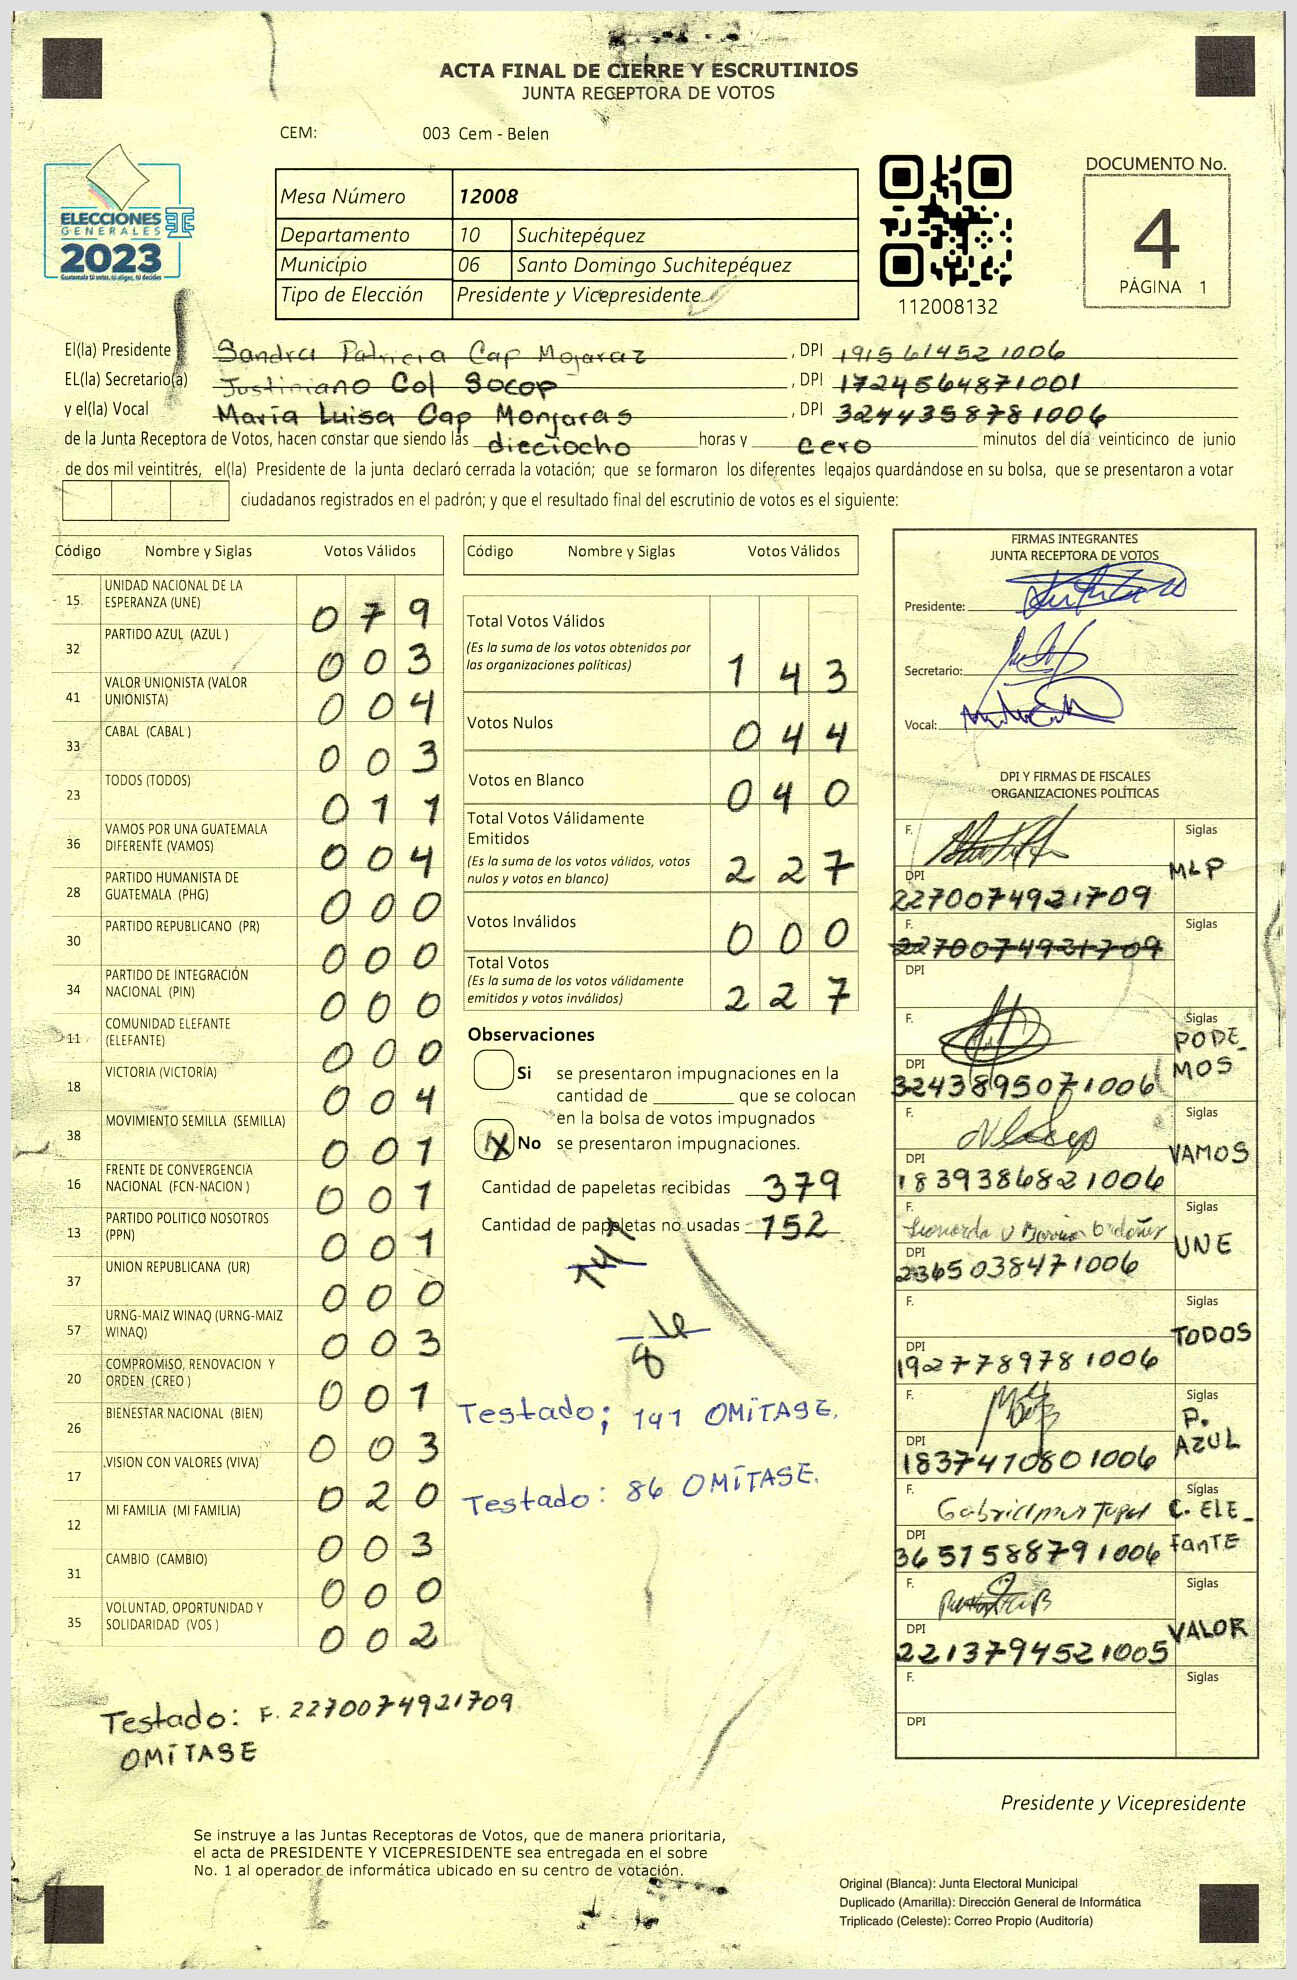 ACTA FINAL DE CIERRE Y ESCRUTINIOS
JUNTA RECEPTORA DE VOTOS
CEM: 003 Cem - Belen
ELECCIONES
GENERALES
2023
Guatemala tú votas, tú eliges, tú decides
Mesa Número 12008
Departamento 10 Suchitepéquez
Municipio 06 Santo Domingo Suchitepéquez
Tipo de Elección Presidente y Vicepresidente
112008132
DOCUMENTO No.
4
PÁGINA 1
El(la) Presidente Sandra Patricia Cap Mojaraz , DPI 1915614521006
EL(la) Secretario(a) Justiniano Col Socop , DPI 1724564871001
y el(la) Vocal María Luisa Cap Monjaras , DPI 3244358781006
de la Junta Receptora de Votos, hacen constar que siendo las dieciocho horas y cero minutos del día veinticinco de junio
de dos mil veintitrés, el(la) Presidente de la junta declaró cerrada la votación; que se formaron los diferentes legajos quardándose en su bolsa, que se presentaron a votar
ciudadanos registrados en el padrón; y que el resultado final del escrutinio de votos es el siguiente:
Código Nombre y Siglas Votos Válidos
15 UNIDAD NACIONAL DE LA ESPERANZA (UNE) 079
32 PARTIDO AZUL (AZUL ) 003
41 VALOR UNIONISTA (VALOR UNIONISTA) 004
33 CABAL (CABAL ) 003
23 TODOS (TODOS) 011
36 VAMOS POR UNA GUATEMALA DIFERENTE (VAMOS) 004
28 PARTIDO HUMANISTA DE GUATEMALA (PHG) 000
30 PARTIDO REPUBLICANO (PR) 000
34 PARTIDO DE INTEGRACIÓN NACIONAL (PIN) 000
11 COMUNIDAD ELEFANTE (ELEFANTE) 000
18 VICTORIA (VICTORIA) 004
38 MOVIMIENTO SEMILLA (SEMILLA) 001
16 FRENTE DE CONVERGENCIA NACIONAL (FCN-NACION ) 001
13 PARTIDO POLITICO NOSOTROS (PPN) 001
37 UNION REPUBLICANA (UR) 000
57 URNG-MAIZ WINAQ (URNG-MAIZ WINAQ) 003
20 COMPROMISO, RENOVACION Y ORDEN (CREO ) 001
26 BIENESTAR NACIONAL (BIEN) 003
17 VISION CON VALORES (VIVA) 020
12 MI FAMILIA (MI FAMILIA) 003
31 CAMBIO (CAMBIO) 000
35 VOLUNTAD, OPORTUNIDAD Y SOLIDARIDAD (VOS ) 002
Testado: F. 2270074921709
OMÍTASE
Código Nombre y Siglas Votos Válidos
Total Votos Válidos
(Es la suma de los votos obtenidos por
las organizaciones políticas) 143
Votos Nulos 044
Votos en Blanco 040
Total Votos Válidamente
Emitidos
(Es la suma de los votos válidos, votos
nulos y votos en blanco) 227
Votos Inválidos 000
Total Votos
(Es la suma de los votos válidamente
emitidos y votos inválidos) 227
Observaciones
Si se presentaron impugnaciones en la
cantidad de ________ que se colocan
en la bolsa de votos impugnados
X No se presentaron impugnaciones.
Cantidad de papeletas recibidas 379
Cantidad de papeletas no usadas 152
141
86
Testado; 141 OMÍTASE.
Testado: 86 OMÍTASE.
FIRMAS INTEGRANTES
JUNTA RECEPTORA DE VOTOS
Presidente:
Secretario:
Vocal:
DPI Y FIRMAS DE FISCALES
ORGANIZACIONES POLÍTICAS
F. Siglas
MLP
DPI
2270074921709
F. Siglas
2270074921709
DPI
F. Siglas
PODE_
MOS
DPI
3243895071006
F. Siglas
VAMOS
DPI
1839386821006
F. Siglas
UNE
DPI
2365038471006
F. Siglas
TODOS
DPI
1927789781006
F. Siglas
P.
AZUL
DPI
1837410801006
F. Siglas
C. ELE_
fanTE
DPI
3651588791006
F. Siglas
VALOR
DPI
2213794521005
F. Siglas
DPI
Presidente y Vicepresidente
Se instruye a las Juntas Receptoras de Votos, que de manera prioritaria,
el acta de PRESIDENTE Y VICEPRESIDENTE sea entregada en el sobre
No. 1 al operador de informática ubicado en su centro de votación.
Original (Blanca): Junta Electoral Municipal
Duplicado (Amarilla): Dirección General de Informática
Triplicado (Celeste): Correo Propio (Auditoría)